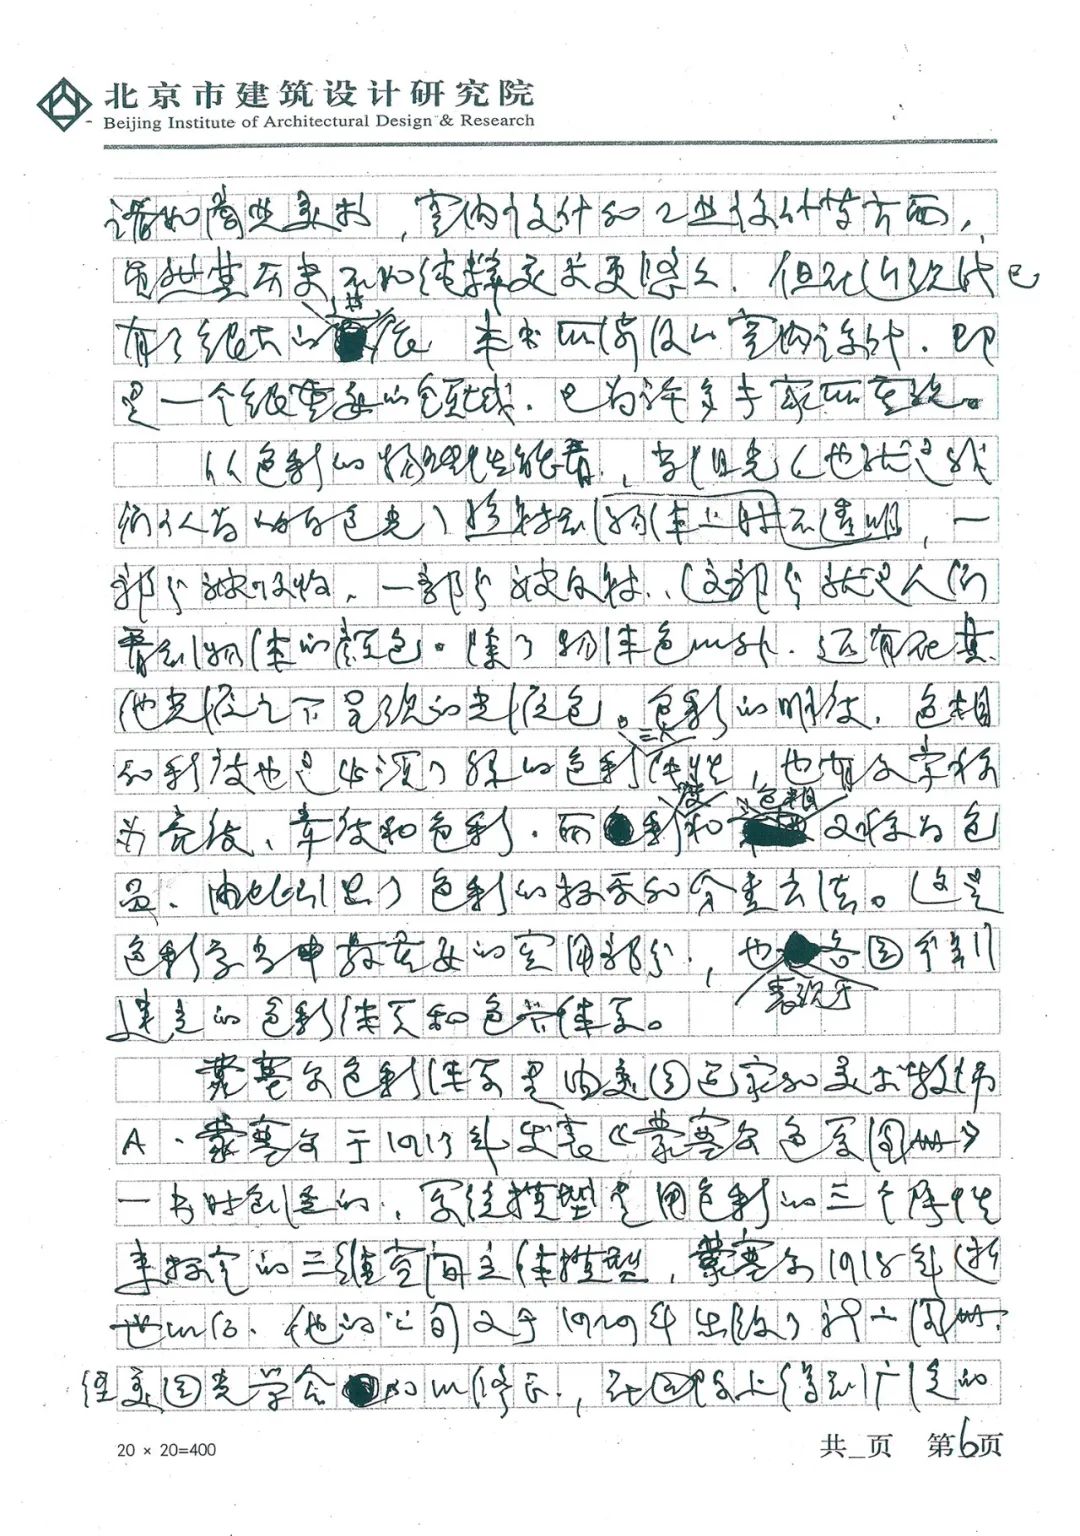 北京市建筑设计研究院
Beijing Institute of Architectural Design & Research
诸如商业美术，室内设计和工业设计等方面，
虽然其历史不如纯粹美术更悠久．但在近现代已
有了很大的扩展 本书所涉及的室内设计．即
是一个很重要的领域．已为许多专家所重视。
从色彩的物理性能看，当阳光（也就是我
们认为的白色光）照射到物体上时不透明，一
部分被吸收、一部分被反射．（这部分就是人们
看到物体的颜色。除了物体色以外．还有在其
他光源之下呈现的光源色。色彩的明度．色相
和彩度也是必须了解的色彩三大属性，也有文字称
为亮度、章度和色彩．而彩度和色相又称为色
品．由此引出了色彩的标示和介壹方法。这是
色彩学当中较重要的实用部分，也表现于各国分别
建立的色彩体系和色谱体系。
蒙塞尔色彩体系是由美国画家和美术教师
A．蒙塞尔于1913年发表《蒙塞尔色系图册》
一书时创造的．系统模型是用色彩的三个属性
来标定的三维空间立体模型，蒙塞尔1918年逝
世以后．他的公司又于1929年出版了新一图册．
经美国光学会的以修正，在国际上得到广泛的
20 × 20=400
共 页 第6页